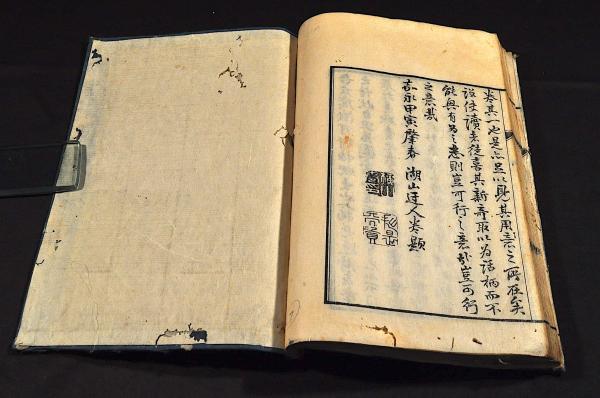 卷其一也是亦足以見其用意之所在矣
設使讀者徒喜其新奇取以為話柄而不
能與有為之志則豈可行之意哉豈可行
之意哉
嘉永甲寅肇春 湖山迂人卷題